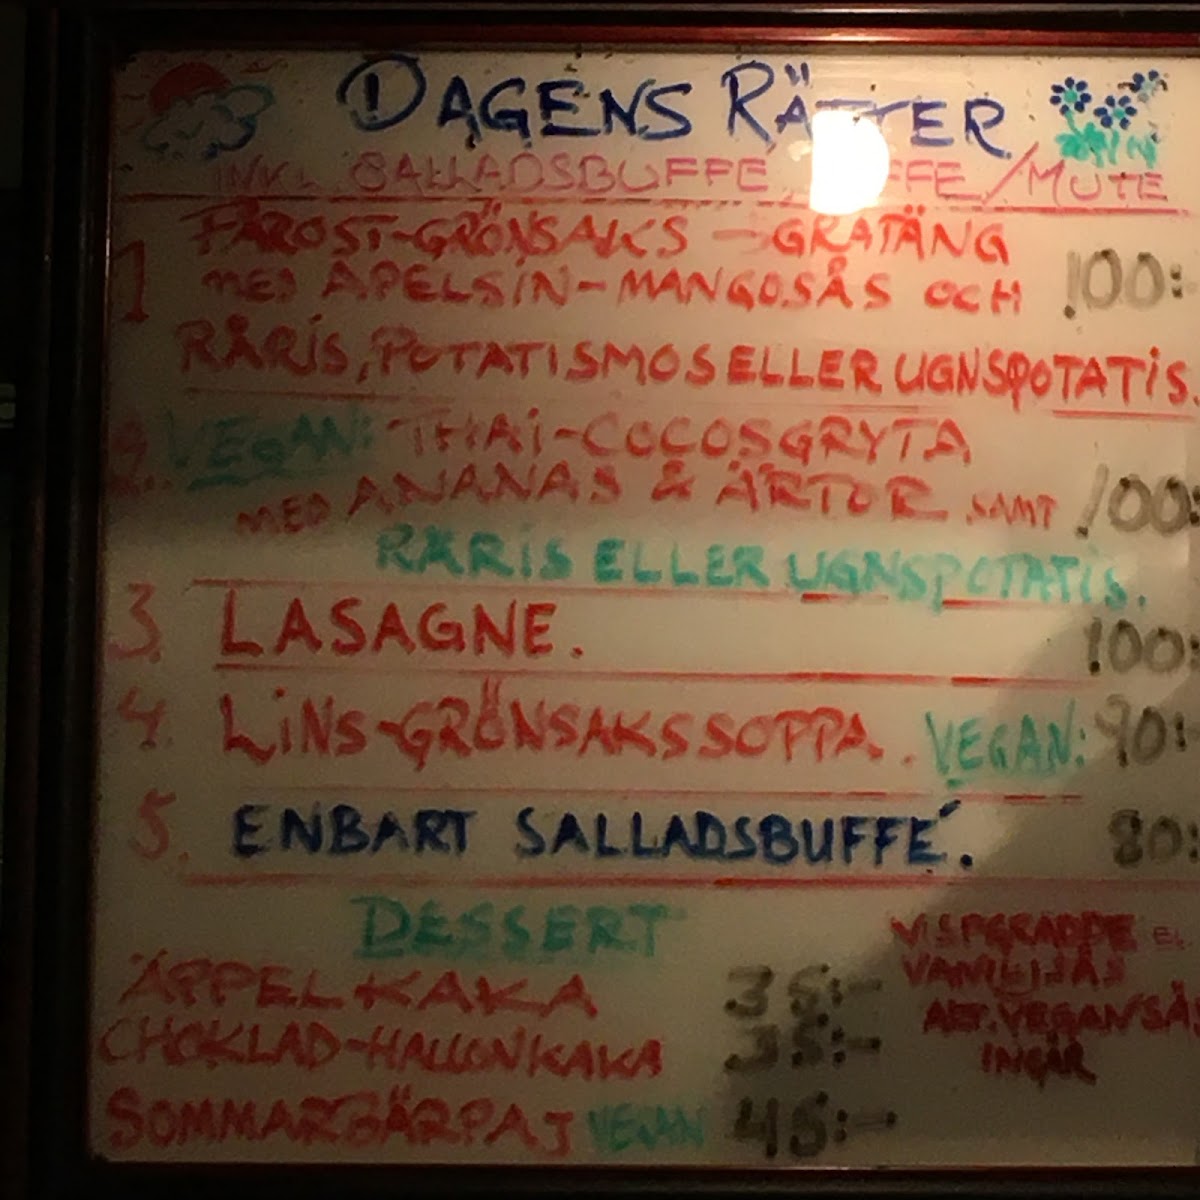 DAGENS RÄTTER
INKL SALLADSBUFFE, FFE/MUTE
1 FÅROST-GRÖNSAKS-GRATÄNG
MED APELSIN-MANGOSÅS OCH 100:
RÅRIS, POTATISMOS ELLER UGNSPOTATIS.
2. VEGAN: THAI-COCOSGRYTA
MED ANANAS & ÄRTOR SAMT 100:
RÅRIS ELLER UGNSPOTATIS.
3. LASAGNE. 100:
4. LINS-GRÖNSAKSSOPPA. VEGAN: 90:
5. ENBART SALLADSBUFFÉ. 80:
DESSERT
ÄPPELKAKA 35:-
CHOKLAD-HALLONKAKA 35:-
SOMMARBÄRPAJ VEGAN 45:-
VISPGRÄDDE EL
VANILJSÅS
ALT. VEGANSÅ
INGÅR